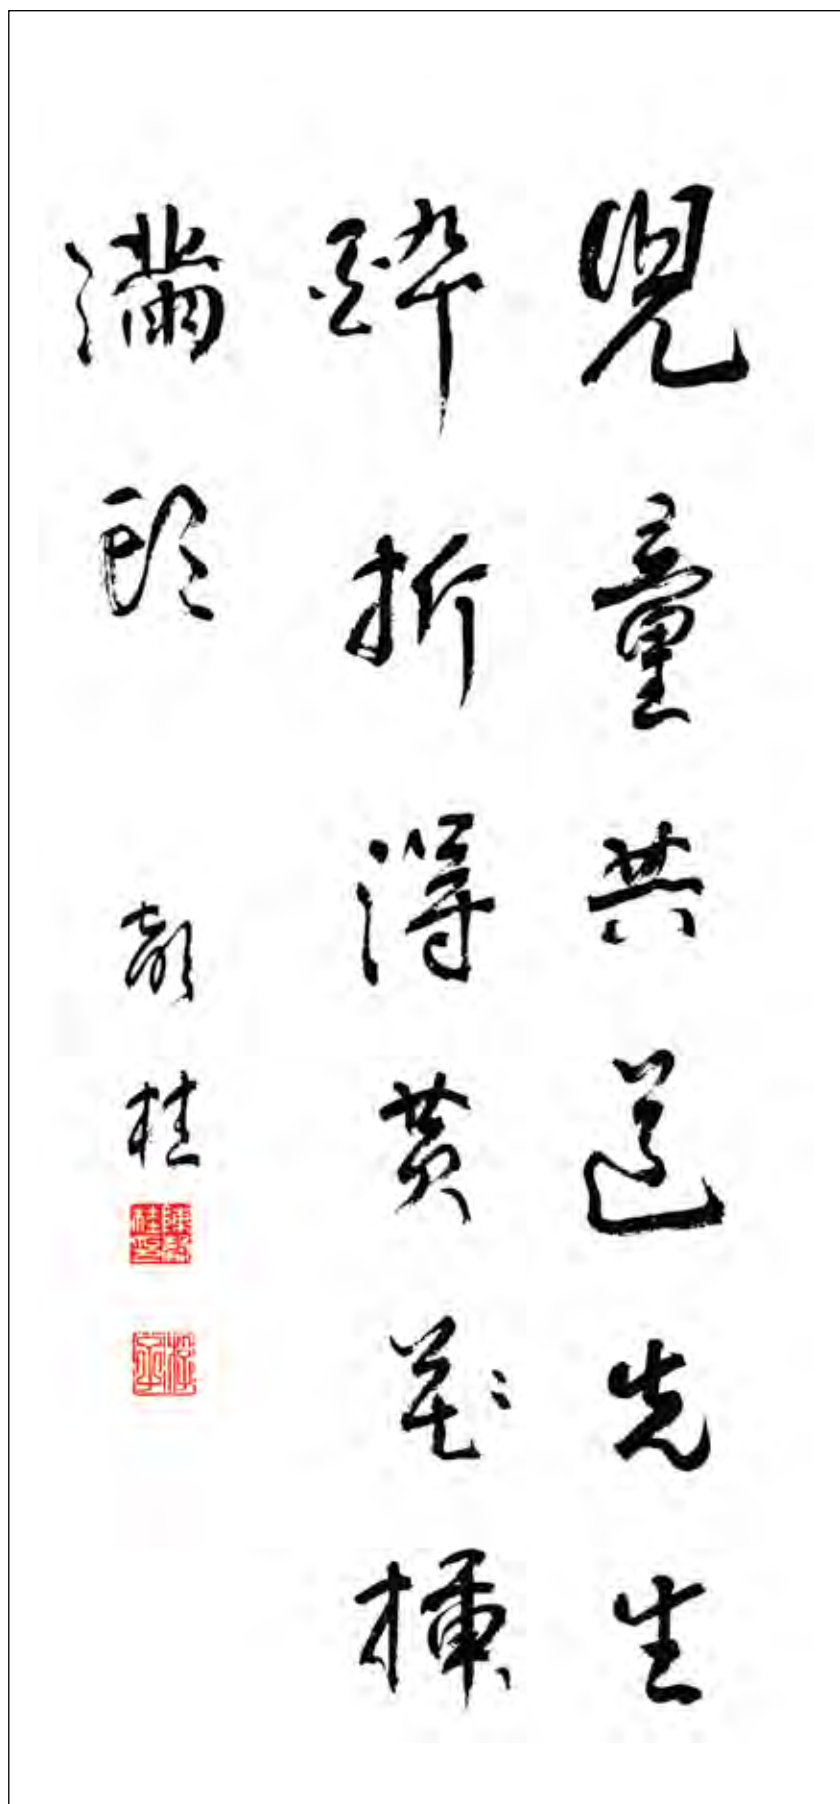 兒童共道先生
醉折得黃花插
滿頭
桂